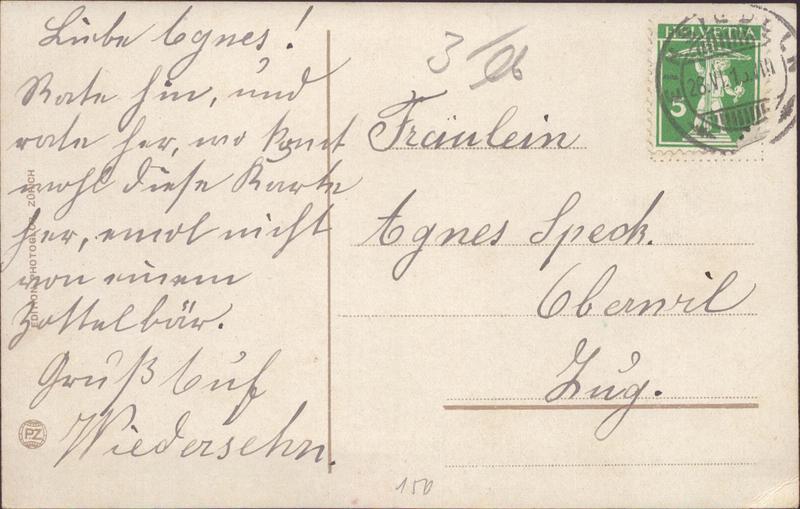 Liebe Agnes!
Rate hin, und
rate her, wo komt
wohl diese Karte
her, emol nicht
von einem
Zottelbär.
Gruß Auf
Wiedersehn.
3
Fräulein
Agnes Speck.
Oberwil
Zug.
150
HELVETIA
5
EDITION PHOTOGLOB ZÜRICH
PZ